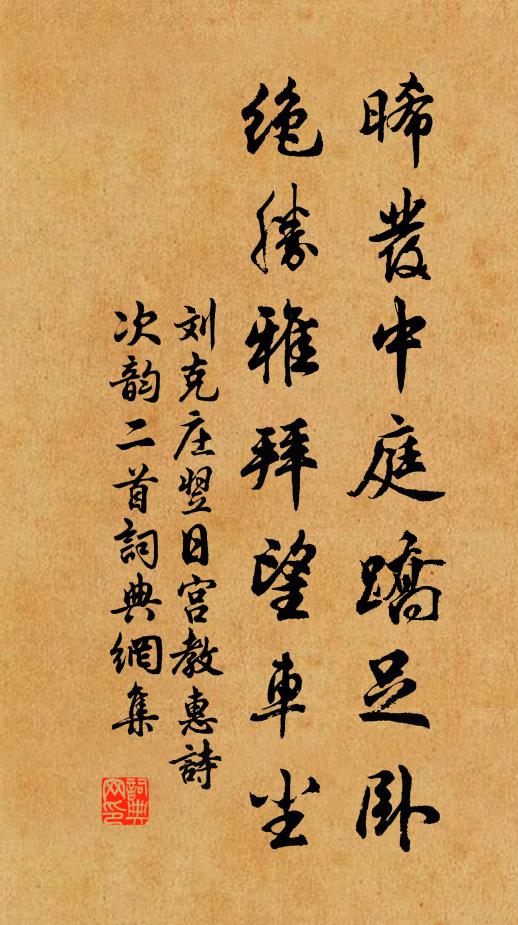 晞發中庭蹻足卧
絶勝雅拜望車尘
刘克庄翌日宫教惠詩
次韵二首詞典網集
詞典网印